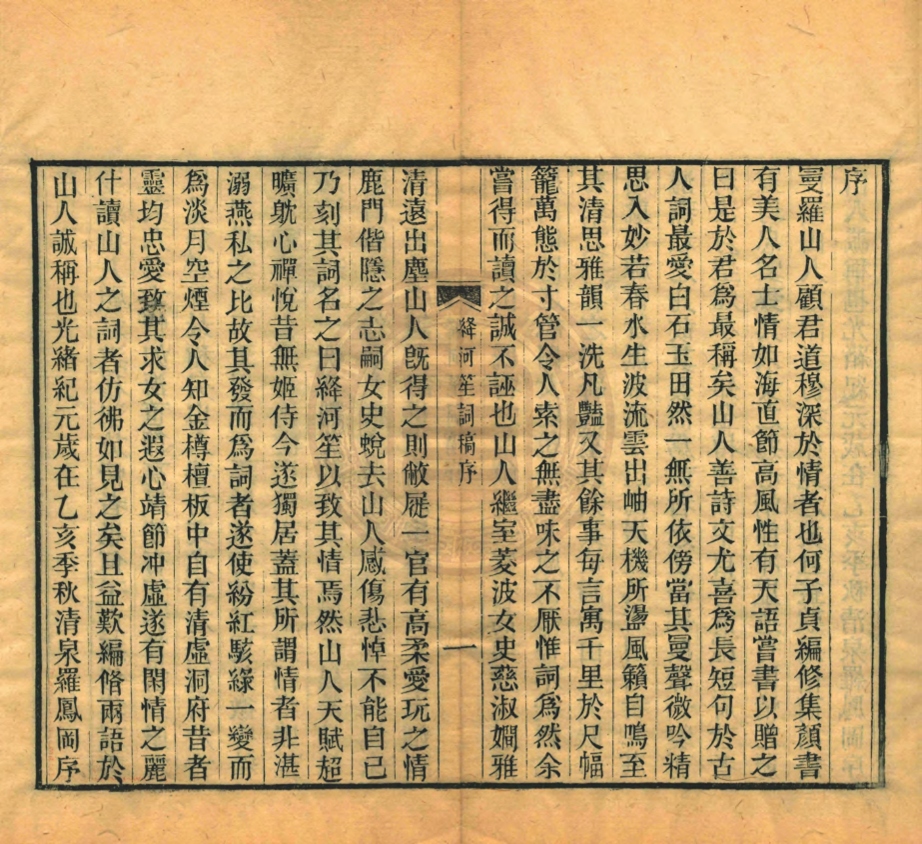 序
曼羅山人顧君道穆深於情者也何子貞編修集顏書
有美人名士情如海直節高風性有天語嘗書以贈之
曰是於君爲最稱矣山人善詩文尤喜爲長短句於古
人詞最愛白石玉田然一無所依傍當其曼聲微吟精
思入妙若春水生波流雲出岫天機所盪風籟自鳴至
其清思雅韻一洗凡豔又其餘事每言寓千里於尺幅
籠萬態於寸管令人索之無盡味之不厭惟詞爲然余
嘗得而讀之誠不誣也山人繼室菱波女史慈淑嫻雅
絳河笙詞稿序
一
清遠出塵山人旣得之則敝屣一官有高柔愛玩之情
鹿門偕隱之志嗣女史蛻去山人感傷悲悼不能自已
乃刻其詞名之曰絳河笙以致其情焉然山人天賦超
曠躭心禪悅昔無姬侍今遂獨居蓋其所謂情者非湛
溺燕私之比故其發而爲詞者遂使紛紅駭綠一變而
爲淡月空煙令人知金樽檀板中自有清虛洞府昔者
靈均忠愛致其求女之遐心靖節冲虛遂有閑情之麗
什讀山人之詞者仿彿如見之矣且益歎編脩兩語於
山人誠稱也光緒紀元歲在乙亥季秋清泉羅鳳岡序